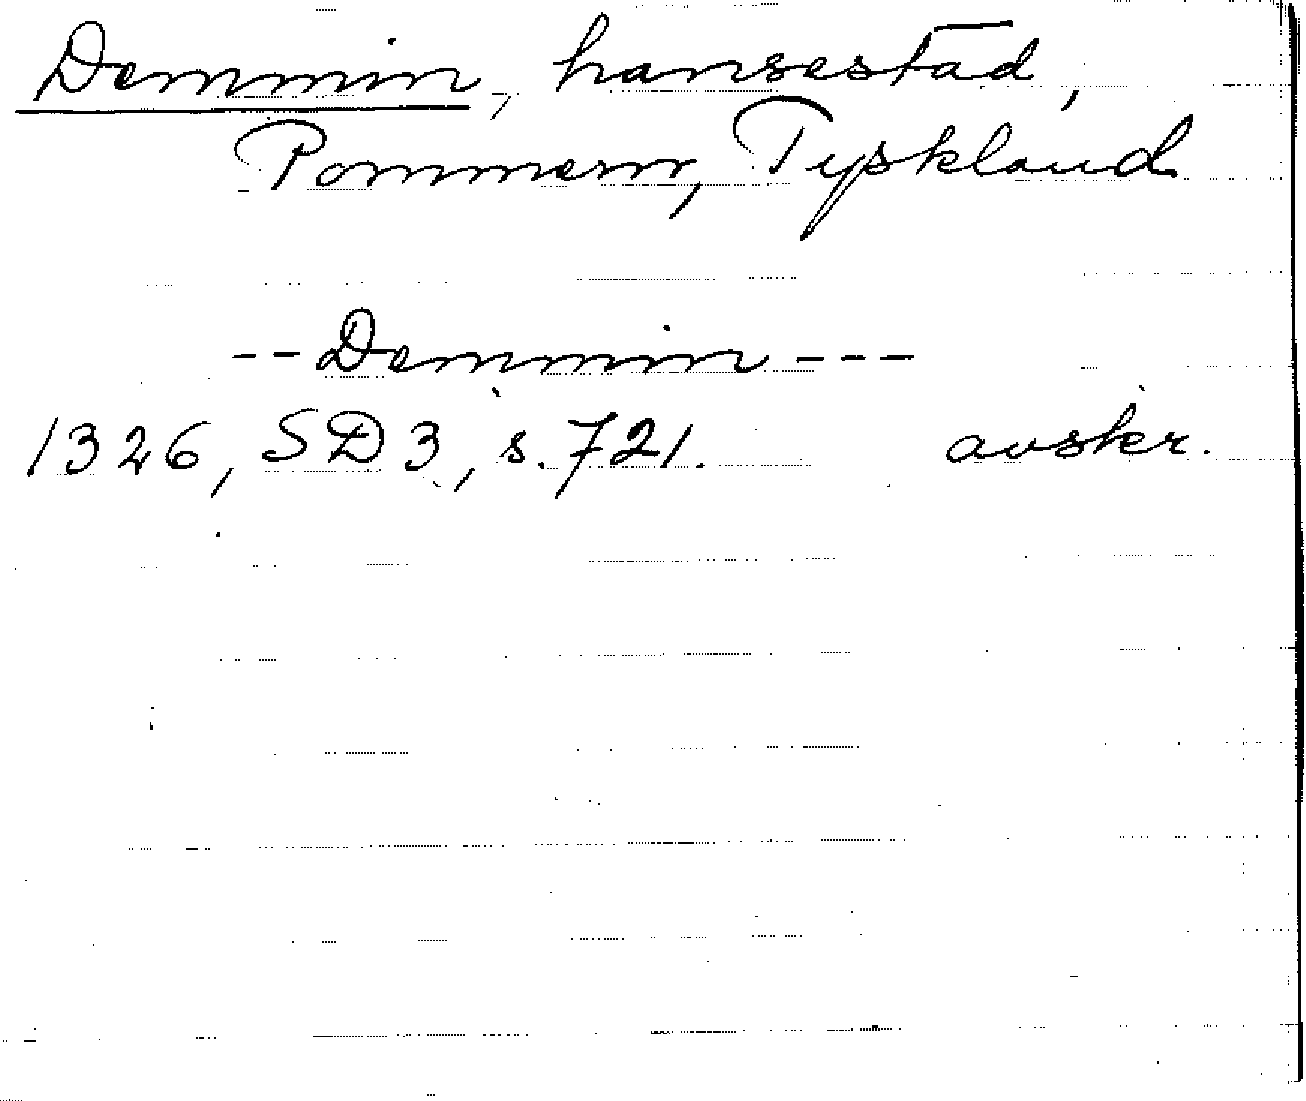 Demmin, hansestad,
Pommern, Tyskland
-- Demmin ---
1326, SD3, s. 721. avskr.